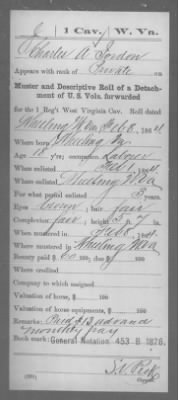 J 1 Cav. W. Va.
Charles A Gordon
Appears with rank of Private
Muster and Descriptive Roll of a Detach-
ment of U. S. Vols. forwarded
for the 1 Reg't West Virginia Cav. Roll dated
Wheeling W Va Feb 8, 1864
Where born Wheeling Va
Age 18 y'rs; occupation Laborer
When enlisted Feb 1
Where enlisted Wheeling W Va
For what period enlisted 3 years.
Eyes Brown; hair fair
Complexion fair; height 5 ft. 7 in.
When mustered in Feb 8
Where mustered in Wheeling W Va
Bounty paid $ 60; due $ 100
Where credited
Company to which assigned
Valuation of horse, $ 100
Valuation of horse equipments, $ 100
Remarks: Paid $13 advance
monthly pay
Book mark: General Notation 453. B. 1876.
Copyist.